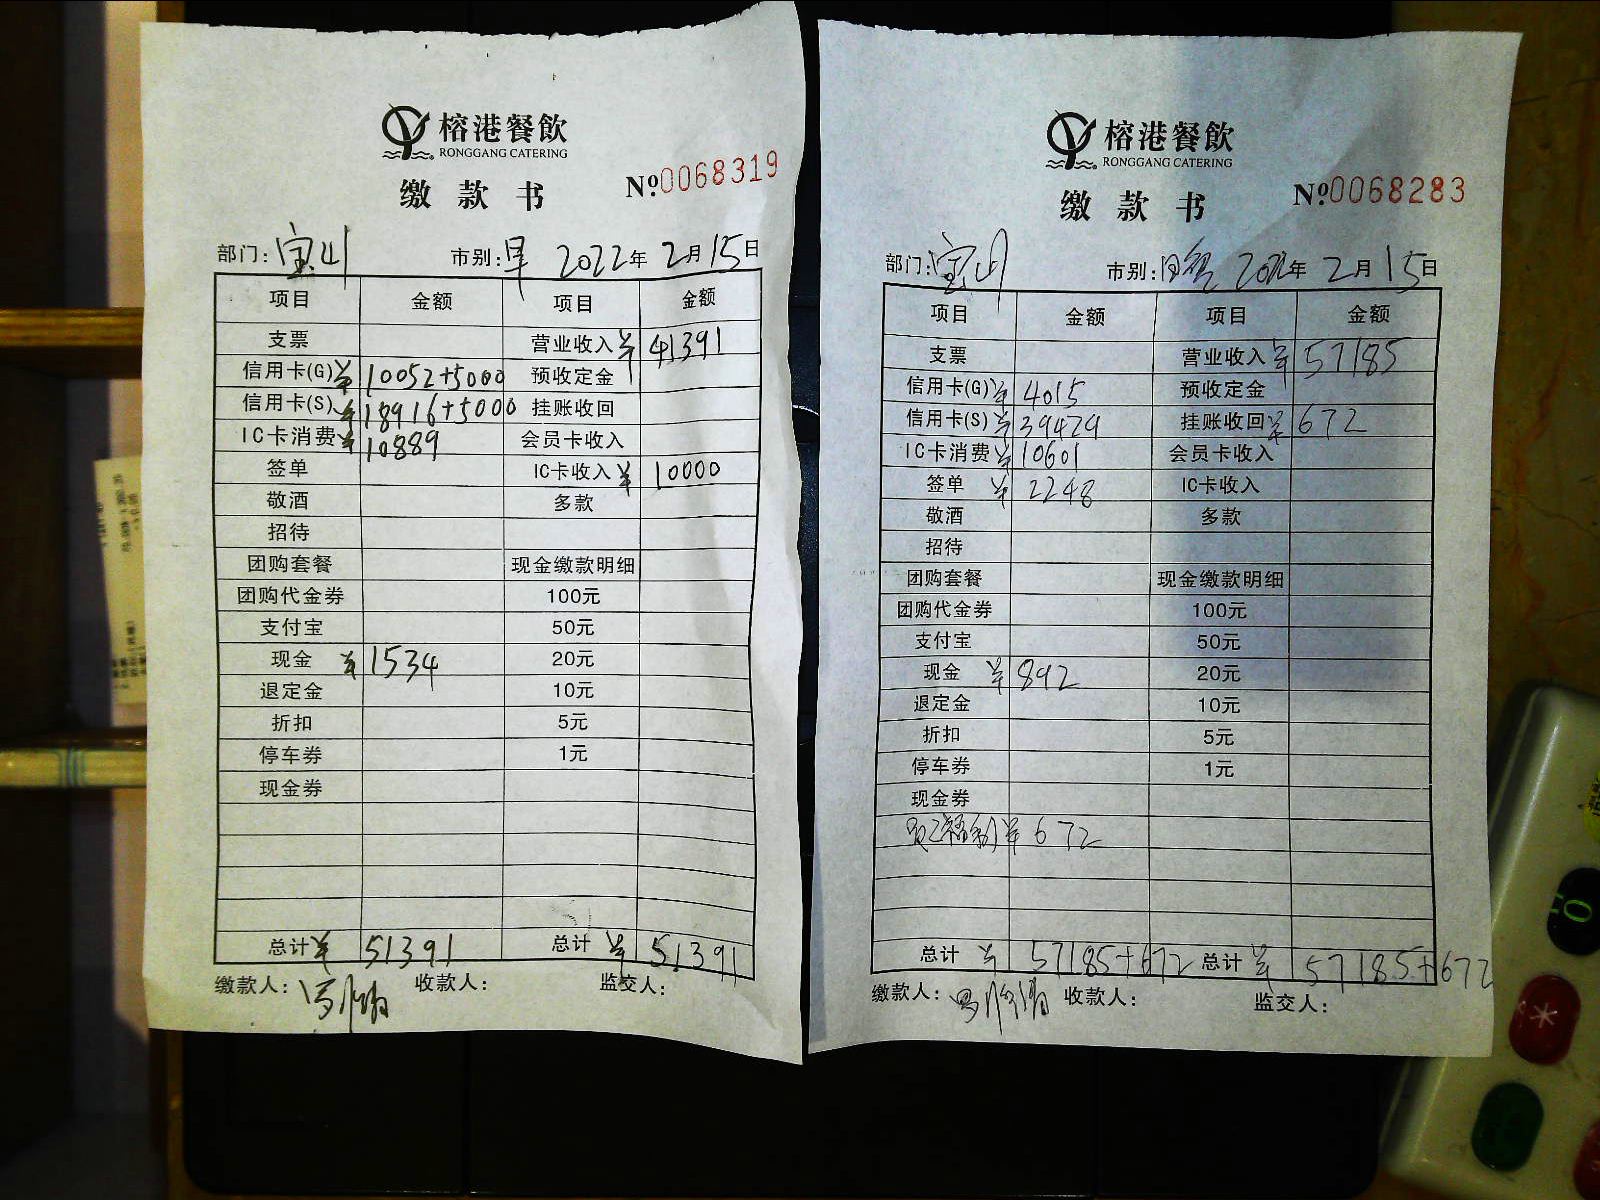 榕港餐飲
RONGGANG CATERING
缴款书
№0068319
部门:宝山 市别:早 2022年2月15日
项目 金额 项目 金额
支票 营业收入 ¥41391
信用卡(G) ¥10052+5000 预收定金
信用卡(S) ¥18916+5000 挂账收回
IC卡消费 ¥10889 会员卡收入
签单 IC卡收入 ¥10000
敬酒 多款
招待
团购套餐 现金缴款明细
团购代金券 100元
支付宝 50元
现金 ¥1534 20元
退定金 10元
折扣 5元
停车券 1元
现金券
总计 ¥51391 总计 ¥51391
缴款人: 收款人: 监交人:
榕港餐飲
RONGGANG CATERING
缴款书
№0068283
部门:宝山 市别: 2022年2月15日
项目 金额 项目 金额
支票 营业收入 ¥57185
信用卡(G) ¥4015 预收定金
信用卡(S) ¥39429 挂账收回 ¥672
IC卡消费 ¥10601 会员卡收入
签单 ¥2248 IC卡收入
敬酒 多款
招待
团购套餐 现金缴款明细
团购代金券 100元
支付宝 50元
现金 ¥892 20元
退定金 10元
折扣 5元
停车券 1元
现金券
员工福利 ¥672
总计 ¥57185+672 总计 ¥57185+672
缴款人: 收款人: 监交人: